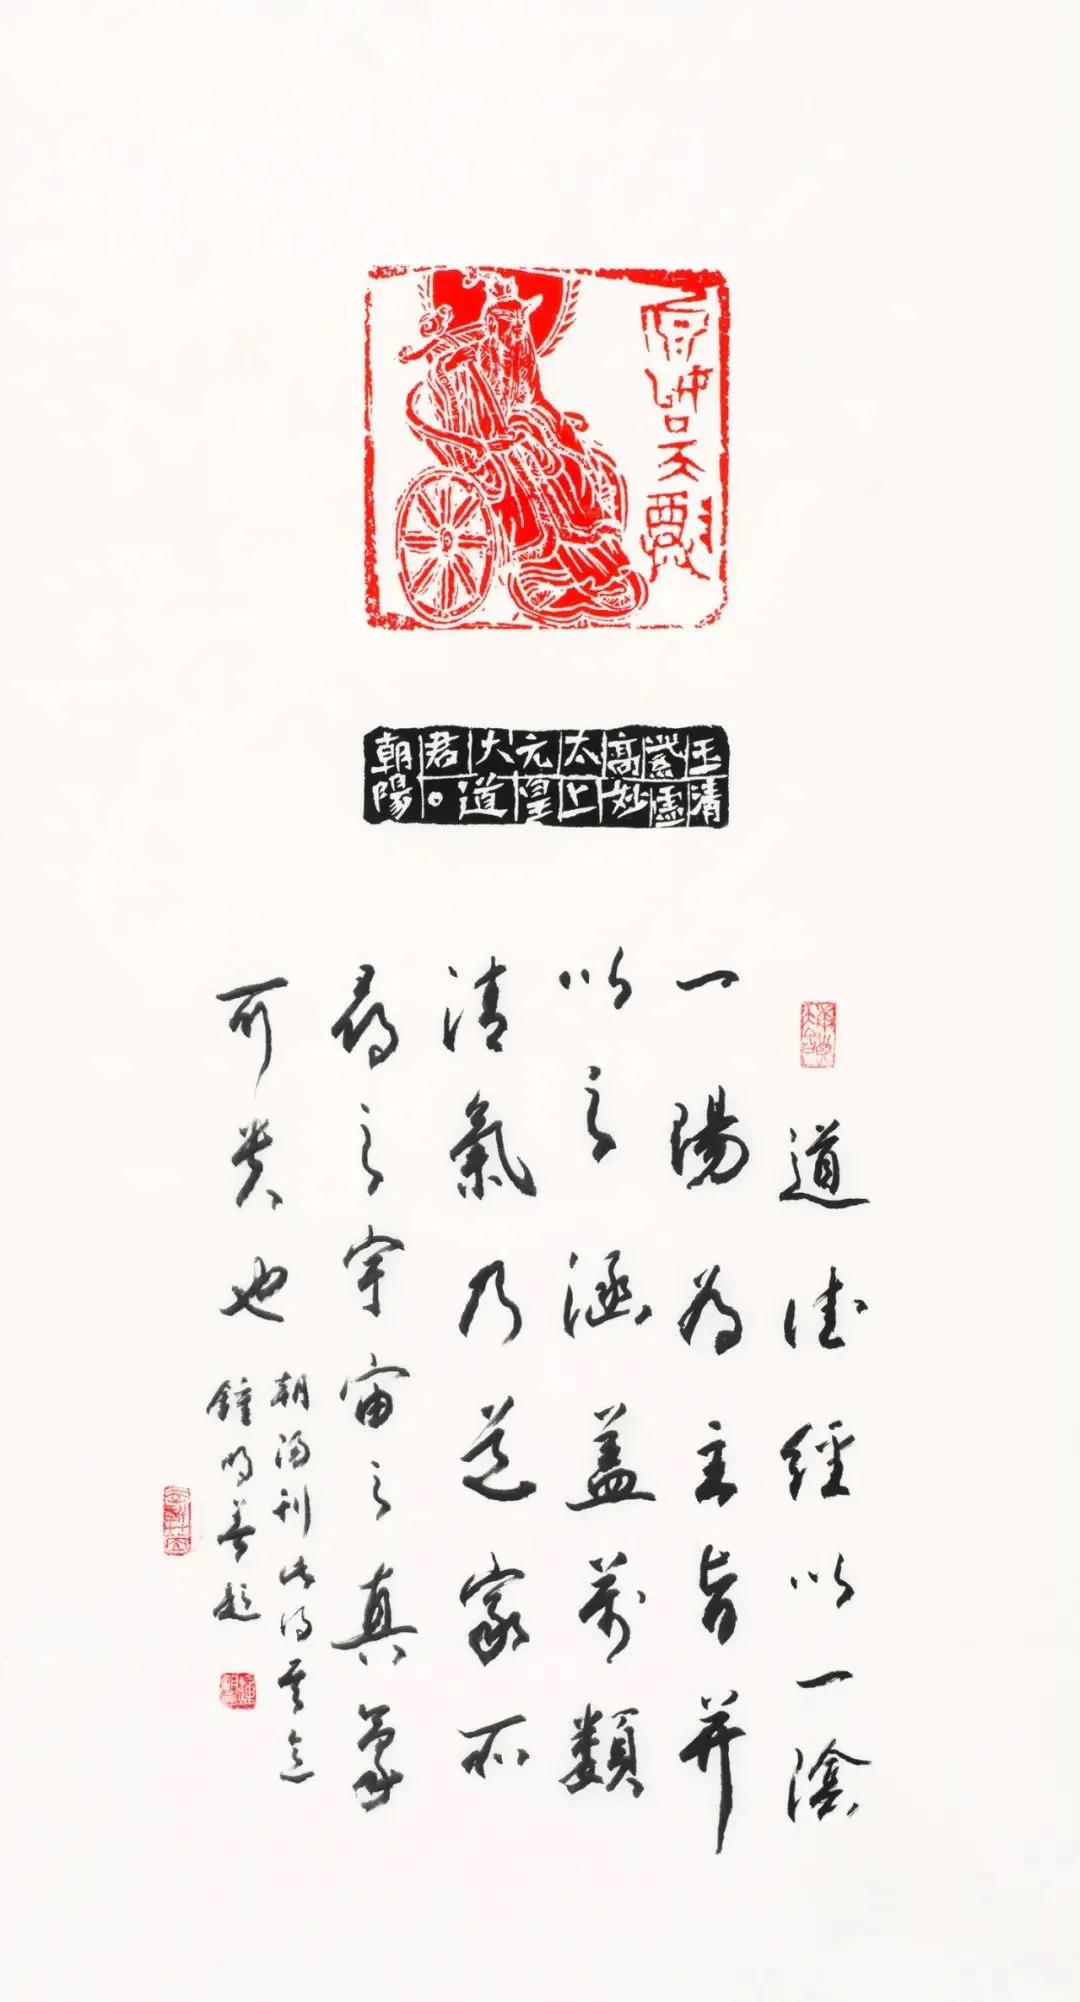 玉清
紫虛
高妙
太上
元皇
大道
君。
朝陽
道德經以一陰
一陽為主旨并
以之涵蓋萬類
清氣乃道家所
尋之宇宙之真象
可貴也
朝陽刊此得其意
鍾明善題